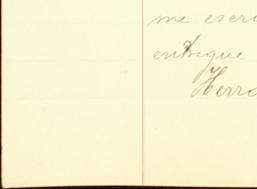 me escri
entregue
Herra